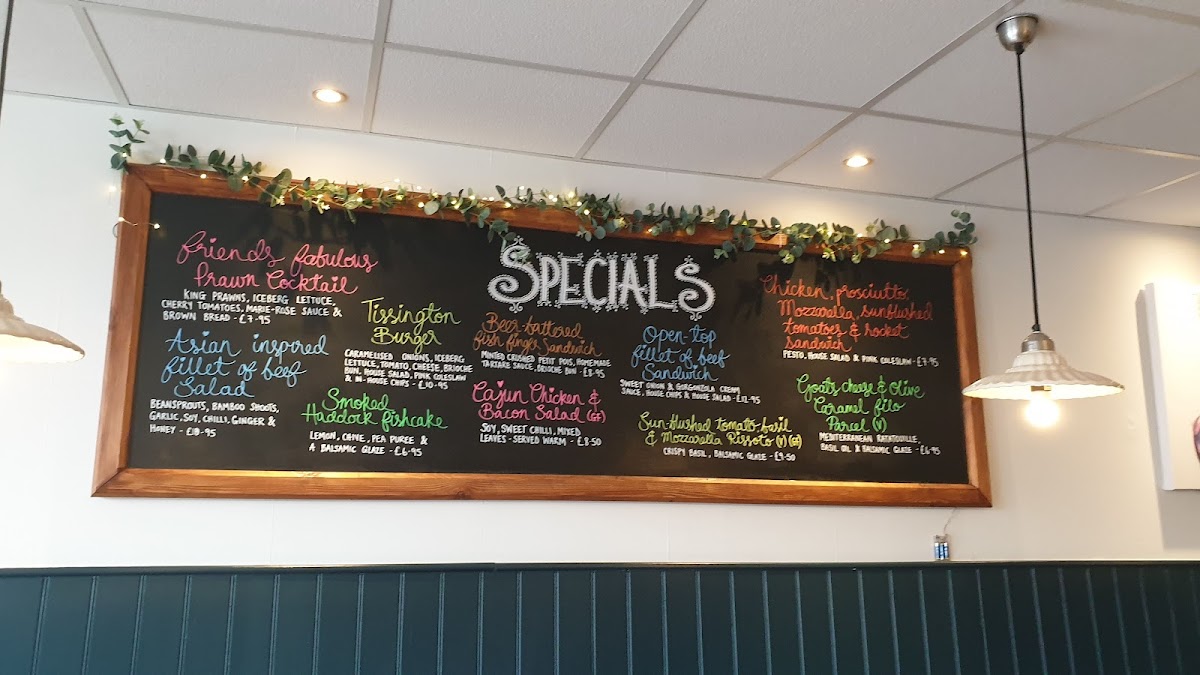 SPECIALS
friends fabulous
Prawn Cocktail
KING PRAWNS, ICEBERG LETTUCE,
CHERRY TOMATOES, MARIE-ROSE SAUCE &
BROWN BREAD - £7.95
Asian inspired
fillet of beef
Salad
BEANSPROUTS, BAMBOO SHOOTS,
GARLIC, SOY, CHILLI, GINGER &
HONEY - £10.95
Tissington
Burger
CARAMELISED ONIONS, ICEBERG
LETTUCE, TOMATO, CHEESE, BRIOCHE
BUN, HOUSE SALAD, PINK COLESLAW
& IN-HOUSE CHIPS - £10.95
Smoked
Haddock fishcake
LEMON, CHIVE, PEA PUREE &
A BALSAMIC GLAZE - £6.95
Beer-battered
fish finger Sandwich
MINTED CRUSHED PETIT POIS, HOMEMADE
TARTARE SAUCE, BRIOCHE BUN - £8.95
Cajun Chicken &
Bacon Salad (GF)
SOY, SWEET CHILLI, MIXED
LEAVES - SERVED WARM - £8.50
Open-top
fillet of beef
Sandwich
SWEET ONION & GORGONZOLA CREAM
SAUCE, HOUSE CHIPS & HOUSE SALAD - £12.95
Sun-blushed tomato, basil
& Mozzarella Rissoto (V) (GF)
CRISPY BASIL, BALSAMIC GLAZE - £9.50
Chicken, prosciutto,
Mozzarella, sunblushed
tomatoes & rocket
sandwich
PESTO, HOUSE SALAD & PINK COLESLAW - £7.95
Goats cheese & Olive
Caramel filo
Parcel (V)
MEDITERRANEAN RATATOUILLE,
BASIL OIL & BALSAMIC GLAZE - £6.95